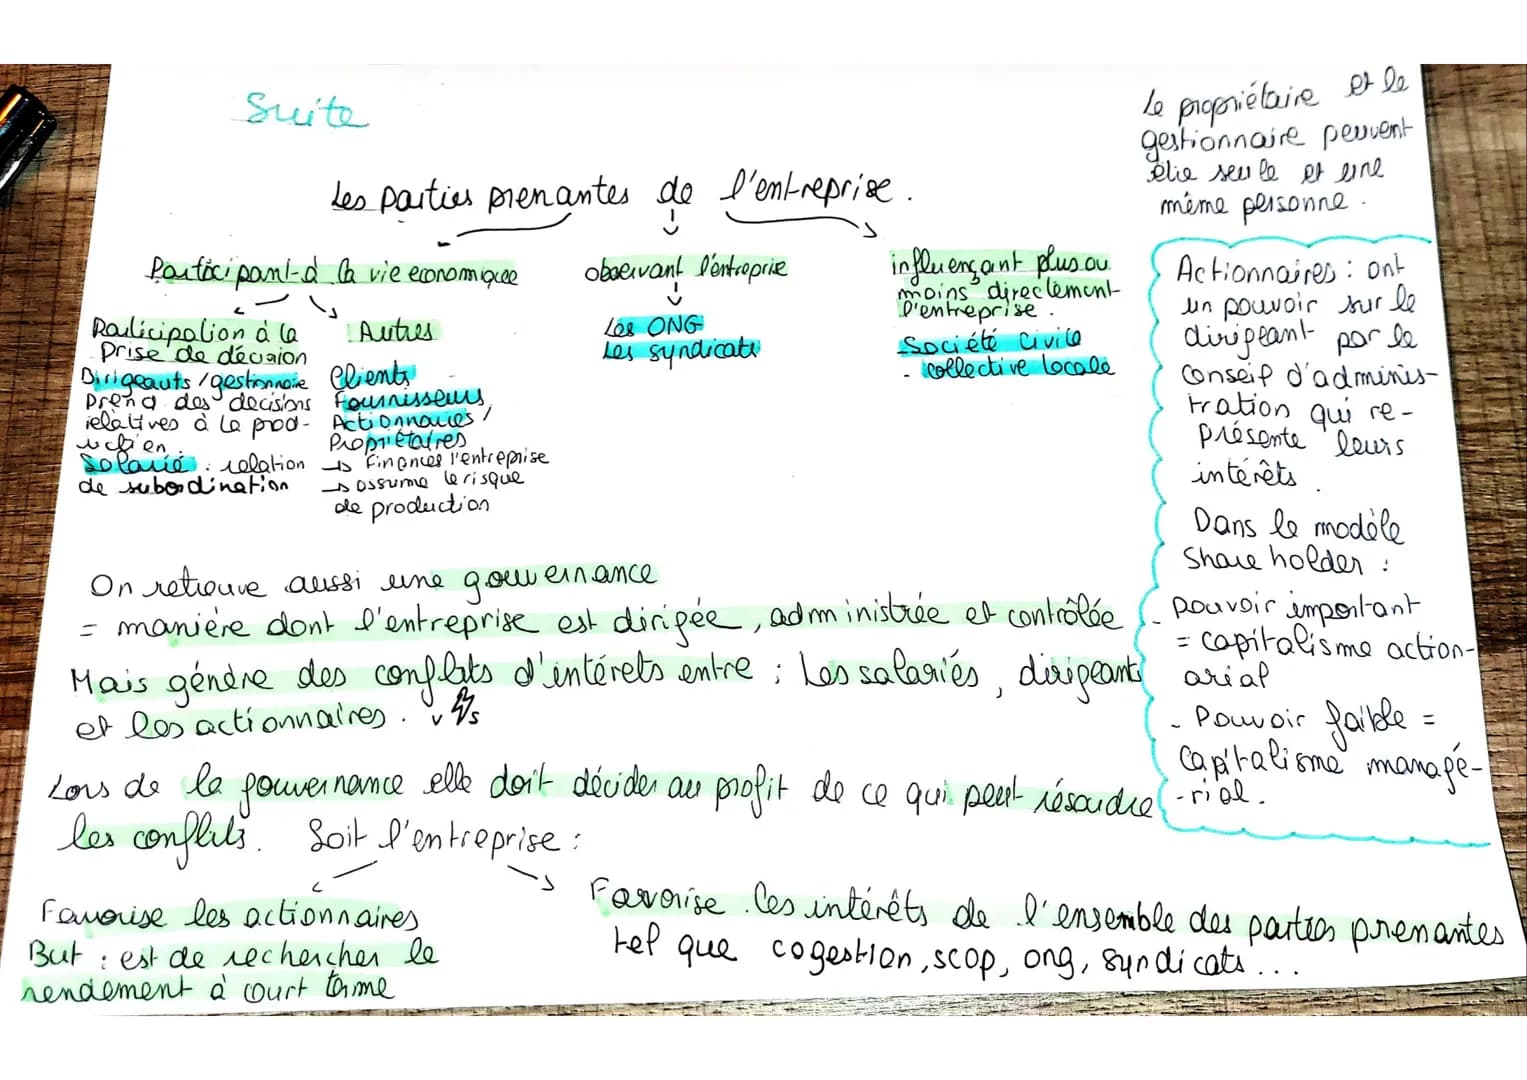 Suite
Le propriétaire et le
gestionnaire peuvent
être seule et une
même personne.
Les parties prenantes de l'entreprise.
Participant à la vie economique
Participation à la
Prise de décision
Dirigeants/gestionnaire
Prend des decisions
relatives à la prod-
uction.
Salarié : relation
de subordination
Autres
Clients
Fournisseurs
Actionnaires/
Propriétaires
→ Finances l'entreprise
→ assume le risque
de production
observant l'entreprise
Les ONG
Les syndicats
influençant plus ou
moins directement
l'entreprise.
- Société civile
- collective locale
Actionnaires : ont
un pouvoir sur le
dirigeant par le
conseil d'adminis-
tration qui re-
présente leurs
intérêts.
Dans le modèle
Shareholder :
- pouvoir important
= capitalisme action-
arial
- Pouvoir faible =
Capitalisme managé-
-rial.
On retrouve aussi une gouvernance
= manière dont l'entreprise est dirigée, administrée et contrôlée
Mais géndre des conflits d'intérets entre : Les salariés, dirigeants
et les actionnaires. v s
Lors de la gouvernance elle doit décider au profit de ce qui peut résoudre
les conflits. Soit l'entreprise :
Favorise les actionnaires
But : est de rechercher le
rendement à court terme
Favorise les intérêts de l'ensemble des parties prenantes
tel que cogestion, scop, ong, syndicats...